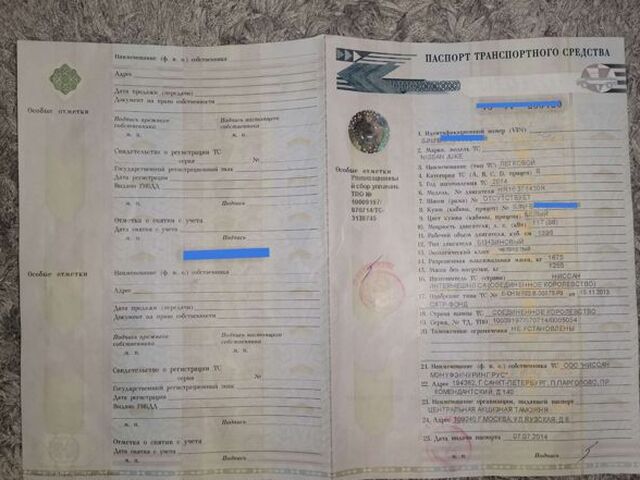 Наименование (ф. и. о.) собственника
Адрес
Дата продажи (передачи)
Документ на право собственности
Особые отметки
Подпись прежнего собственника
Подпись настоящего собственника
м. п.
м. п.
Свидетельство о регистрации ТС
серия
№
Государственный регистрационный знак
Дата регистрации
Выдано ГИБДД
м. п.
Подпись
Отметка о снятии с учета
Дата снятия с учета
м. п.
Подпись
Особые отметки
Наименование (ф. и. о.) собственника
Адрес
Дата продажи (передачи)
Документ на право собственности
Подпись прежнего собственника
Подпись настоящего собственника
м. п.
м. п.
Свидетельство о регистрации ТС
серия
№
Государственный регистрационный знак
Дата регистрации
Выдано ГИБДД
м. п.
Подпись
Отметка о снятии с учета
Дата снятия с учета
м. п.
Подпись
ПАСПОРТ ТРАНСПОРТНОГО СРЕДСТВА
Особые отметки
Утилизационный сбор уплачен
ТПО №
1. Идентификационный номер (VIN)
2. Марка, модель ТС
NISSAN JUKE
3. Наименование (тип ТС) ЛЕГКОВОЙ
4. Категория ТС (А, В, С, D, прицеп) B
5. Год изготовления ТС 2014
6. Модель, № двигателя
7. Шасси (рама) № ОТСУТСТВУЕТ
8. Кузов (кабина, прицеп) №
9. Цвет кузова (кабины, прицепа) БЕЛЫЙ
10. Мощность двигателя, л. с. (кВт) 117 (86)
11. Рабочий объем двигателя, куб. см 1598
12. Тип двигателя БЕНЗИНОВЫЙ
13. Экологический класс
14. Разрешенная максимальная масса, кг 1675
15. Масса без нагрузки, кг
16. Изготовитель ТС (страна) НИССАН
ИНТЕРНЕШНЛ СА(СОЕДИНЕННОЕ КОРОЛЕВСТВО)
17. Одобрение типа ТС №
от 15.11.2013
18. Страна вывоза ТС СОЕДИНЕННОЕ КОРОЛЕВСТВО
19. Серия, № ТД, ТПО
20. Таможенные ограничения НЕ УСТАНОВЛЕНЫ
21. Наименование (ф. и. о.) собственника ТС ООО "НИССАН
МЭНУФЭКЧУРИНГ РУС"
22. Адрес 194362, Г.САНКТ-ПЕТЕРБУРГ, П.ПАРГОЛОВО, ПР.
КОМЕНДАНТСКИЙ, Д.140
23. Наименование организации, выдавшей паспорт
ЦЕНТРАЛЬНАЯ АКЦИЗНАЯ ТАМОЖНЯ
24. Адрес 109240 Г.МОСКВА, УЛ.ЯУЗСКАЯ, Д.8
25. Дата выдачи паспорта 07.07.2014
м. п.
Подпись